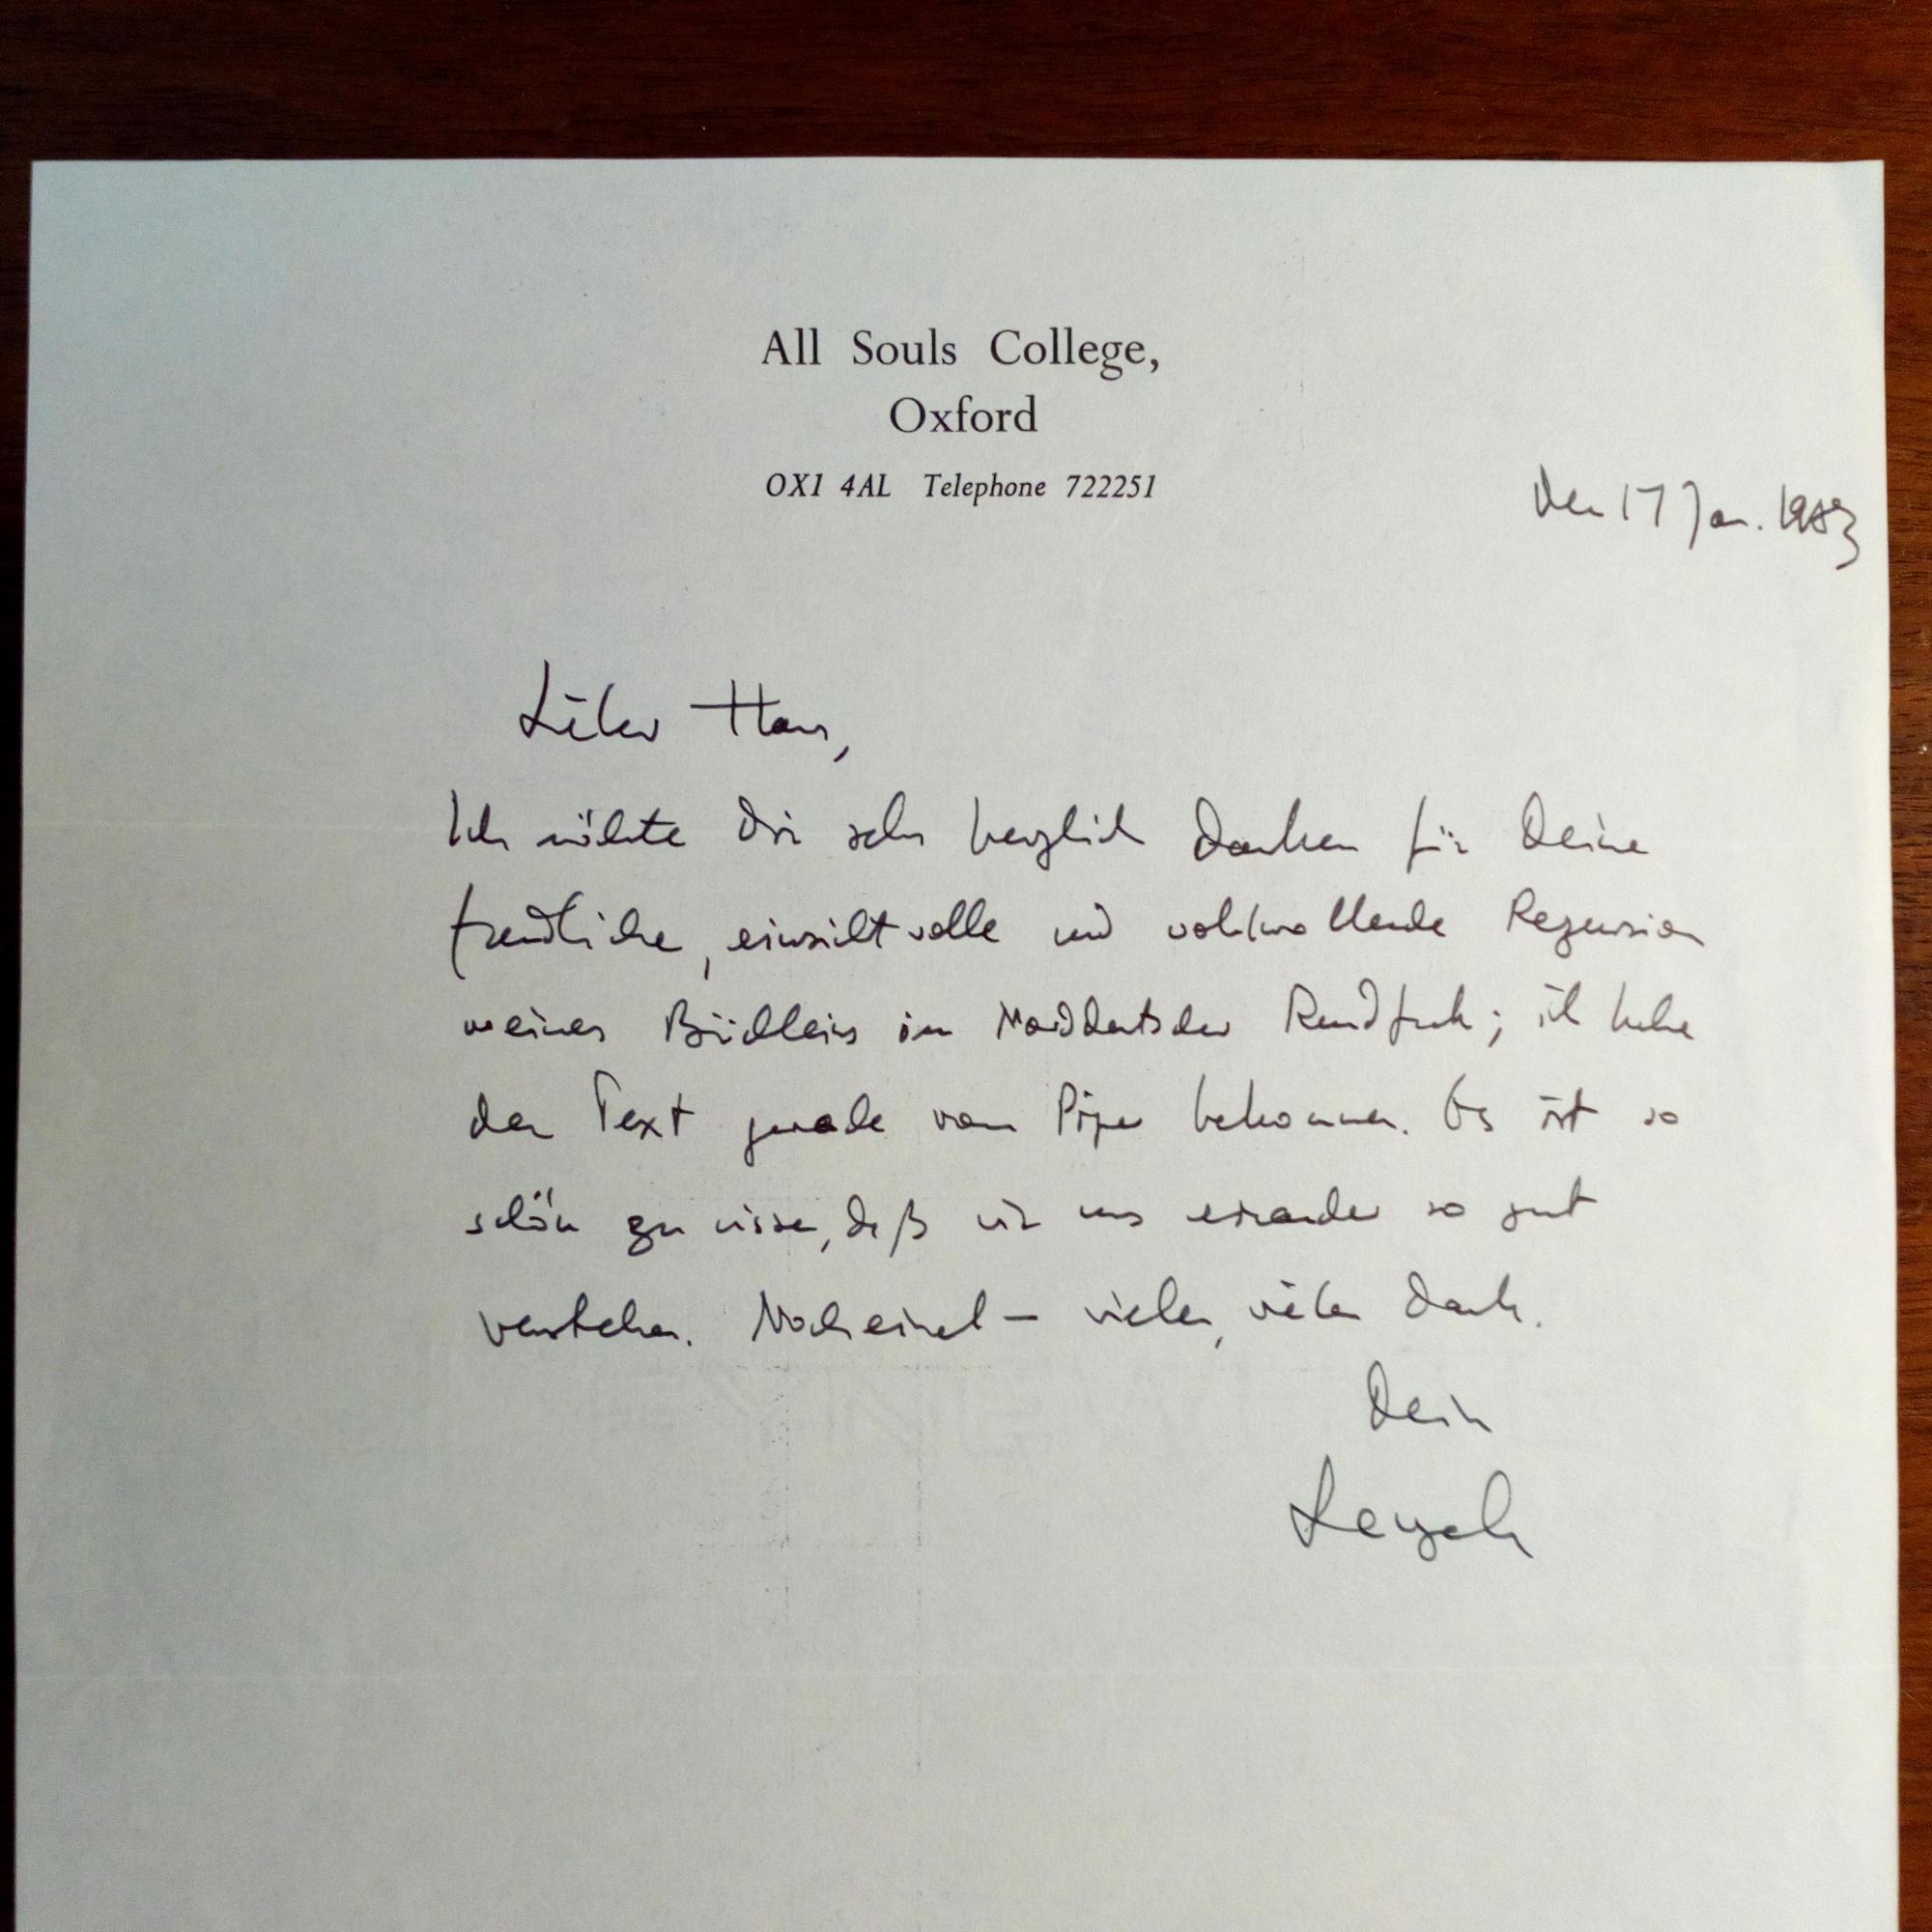 All Souls College,
Oxford
OX1 4AL Telephone 722251
den 17 Jan. 1983
Lieber Hans,
Ich möchte Dir sehr herzlich danken für Deine
freundliche, einsichtvolle und wohlwollende Rezension
meines Büchleins im Norddeutscher Rundfunk; ich habe
den Text gerade von Piper bekommen. Es ist so
schön zu wissen, daß wir uns einander so gut
verstehen. Noch einmal – vielen, vielen Dank.
Dein
Leszek